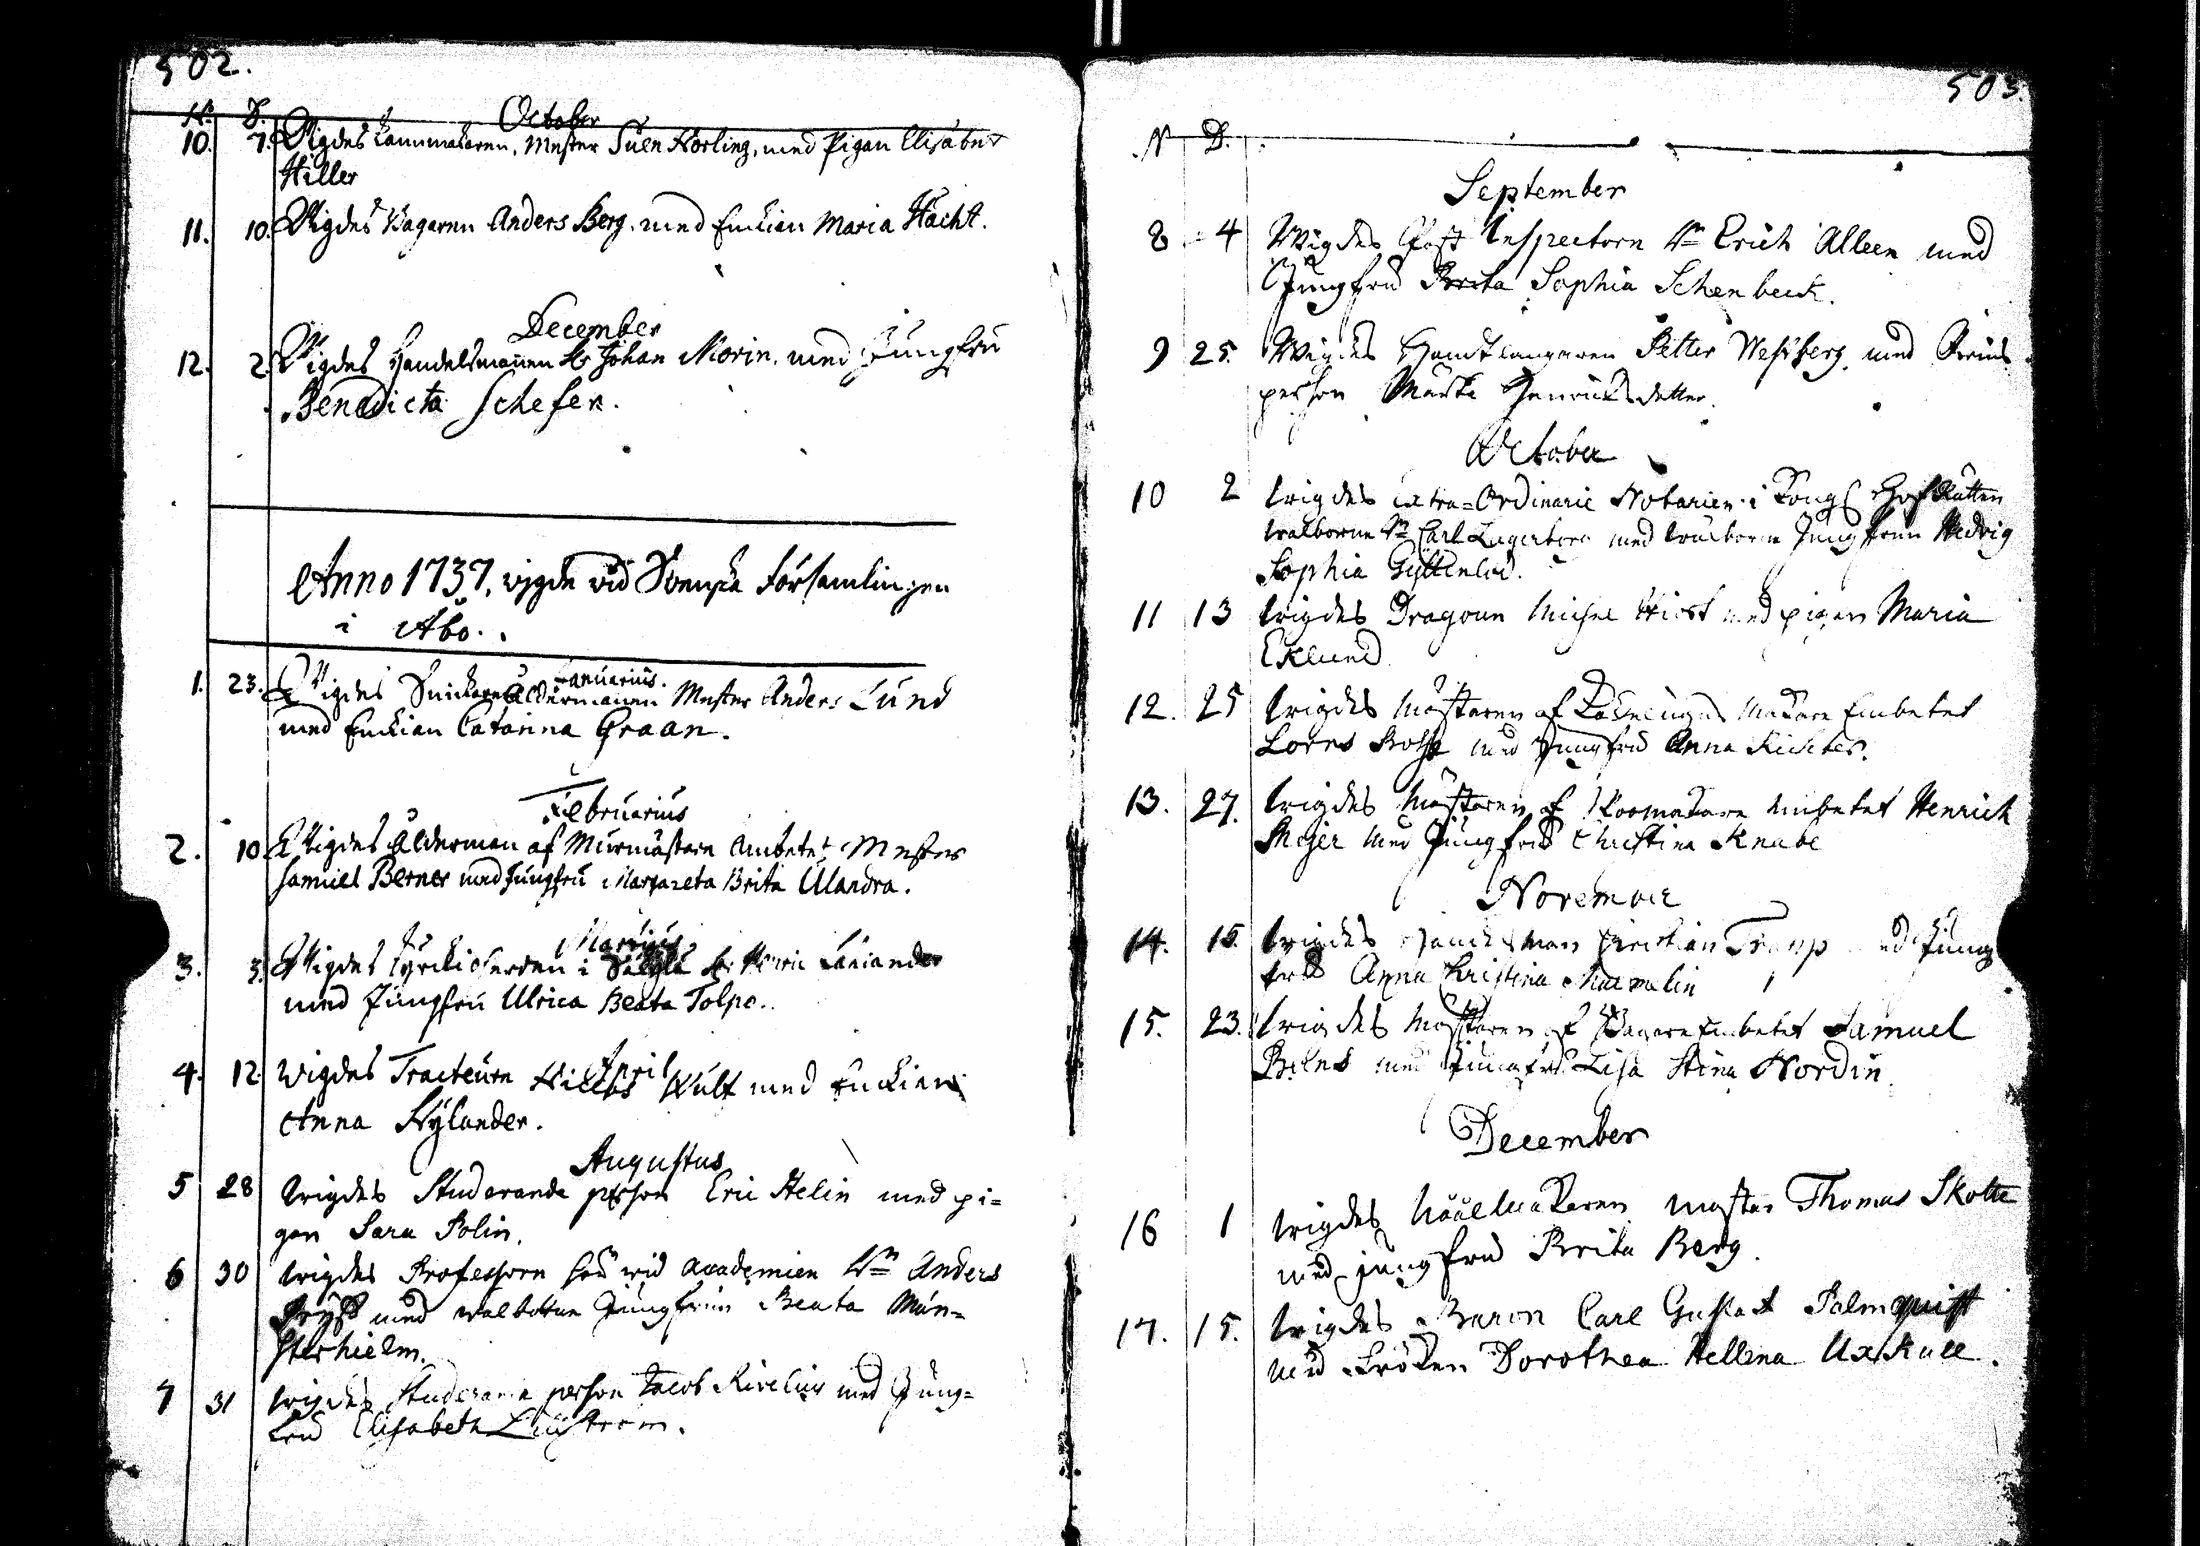 502.
N. D.
October
10. 7. Wigdes Kammakaren, Mester Suen Norling, med Pigan Elisabet
Hiller
11. 10. Wigdes Bagaren Anders Berg. med Enkian Maria Hacht.
December
12. 2. Wigdes Handelsmannen Hr Johan Morin. med Jungfru
Benedicta Schefer.
Anno 1737. vigde vid Svenska församlingen
i Åbo.
Januarius.
1. 23. Wigdes Snickare Åldermannen Mester Anders Lund
med Enkian Catarina Graan.
Februarius
2. 10. Wigdes Ålderman af Murmästare Ambetet Mester
Samuel Berner med Jungfru Margareta Brita Ulandra.
Martius
3. 3. Wigdes Kyrckioherden i Hr Henric Laniander
med Jungfru Ulrica Beata Tolpo.
April
4. 12 Wigdes Tracteuren Wult med Enckian
Anna Nylander.
Augustus
5 28 wigdes Studerande person Eric Helin med pi=
gan Sara Polin.
6 30 wigdes Professoren wid Academien Hr Anders
Pryss med walborne Jungfrun Beata Mün=
sterhielm.
7 31 wigdes Studerande person Jacob Rivelius med Jung=
fru Elisabeth
503.
N D.
September
8 4 Wigdes Post Inspectorn Hr Erich Alleen med
Jungfru Brita Sophia Schenbeck.
9 25. Wigdes Handtlangaren Petter Wessberg. med Qvins
person Marta Henricksdotter.
October
10 2 wigdes Extra=Ordinarie Notarien i Kongl Hof Rätten
walborne Hr Carl Lagerborg med walborne Jungfrun Hedvig
Sophia Gyllenlod.
11 13 wigdes Dragoun Michel med pigan Maria
Eklund
12. 25 wigdes Mästaren af Makare Embetet
med Jungfru Anna Richter.
13. 27. wigdes Mästaren af Skoomakare Embetet Henrich
Meijer med Jungfru Christina Knabe
November
14. 15. wigdes Handelsman Christian Tramp med Jung
fru Anna Christina
15. 23. wigdes Mästaren af Bagare Embetet Samuel
med Jungfru Lisa Stina Nordin.
December
16 1 wigdes mäster Thomas Skotte
med jungfru Brita Berg.
17. 15. wigdes Baron Carl Gustaf Palmquist
med Fröken Dorothea Hellena Uxkull.